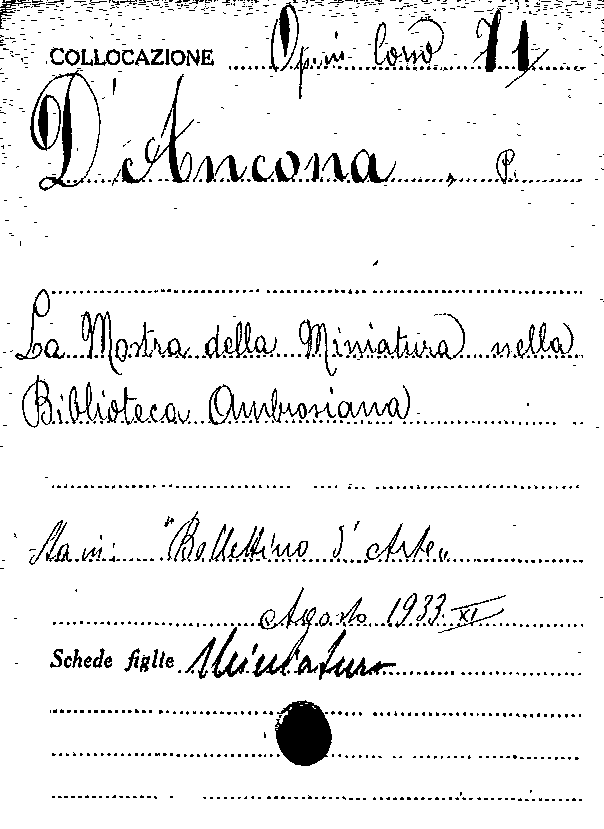 COLLOCAZIONE 71
D'Ancona, P.
La Mostra della Miniatura nella
Biblioteca Ambrosiana
Sta in: "Bollettino d'Arte"
Agosto 1933. XI
Schede figlie Miniatura